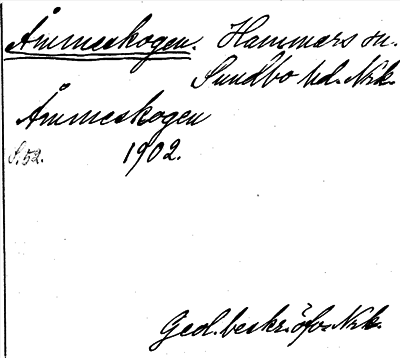 Åmmeskogen. Hammars sn.
Sundbo hd. Nrk.
Åmmeskogen
S. 52. 1902.
Geol. beskr. öfver Nrk.